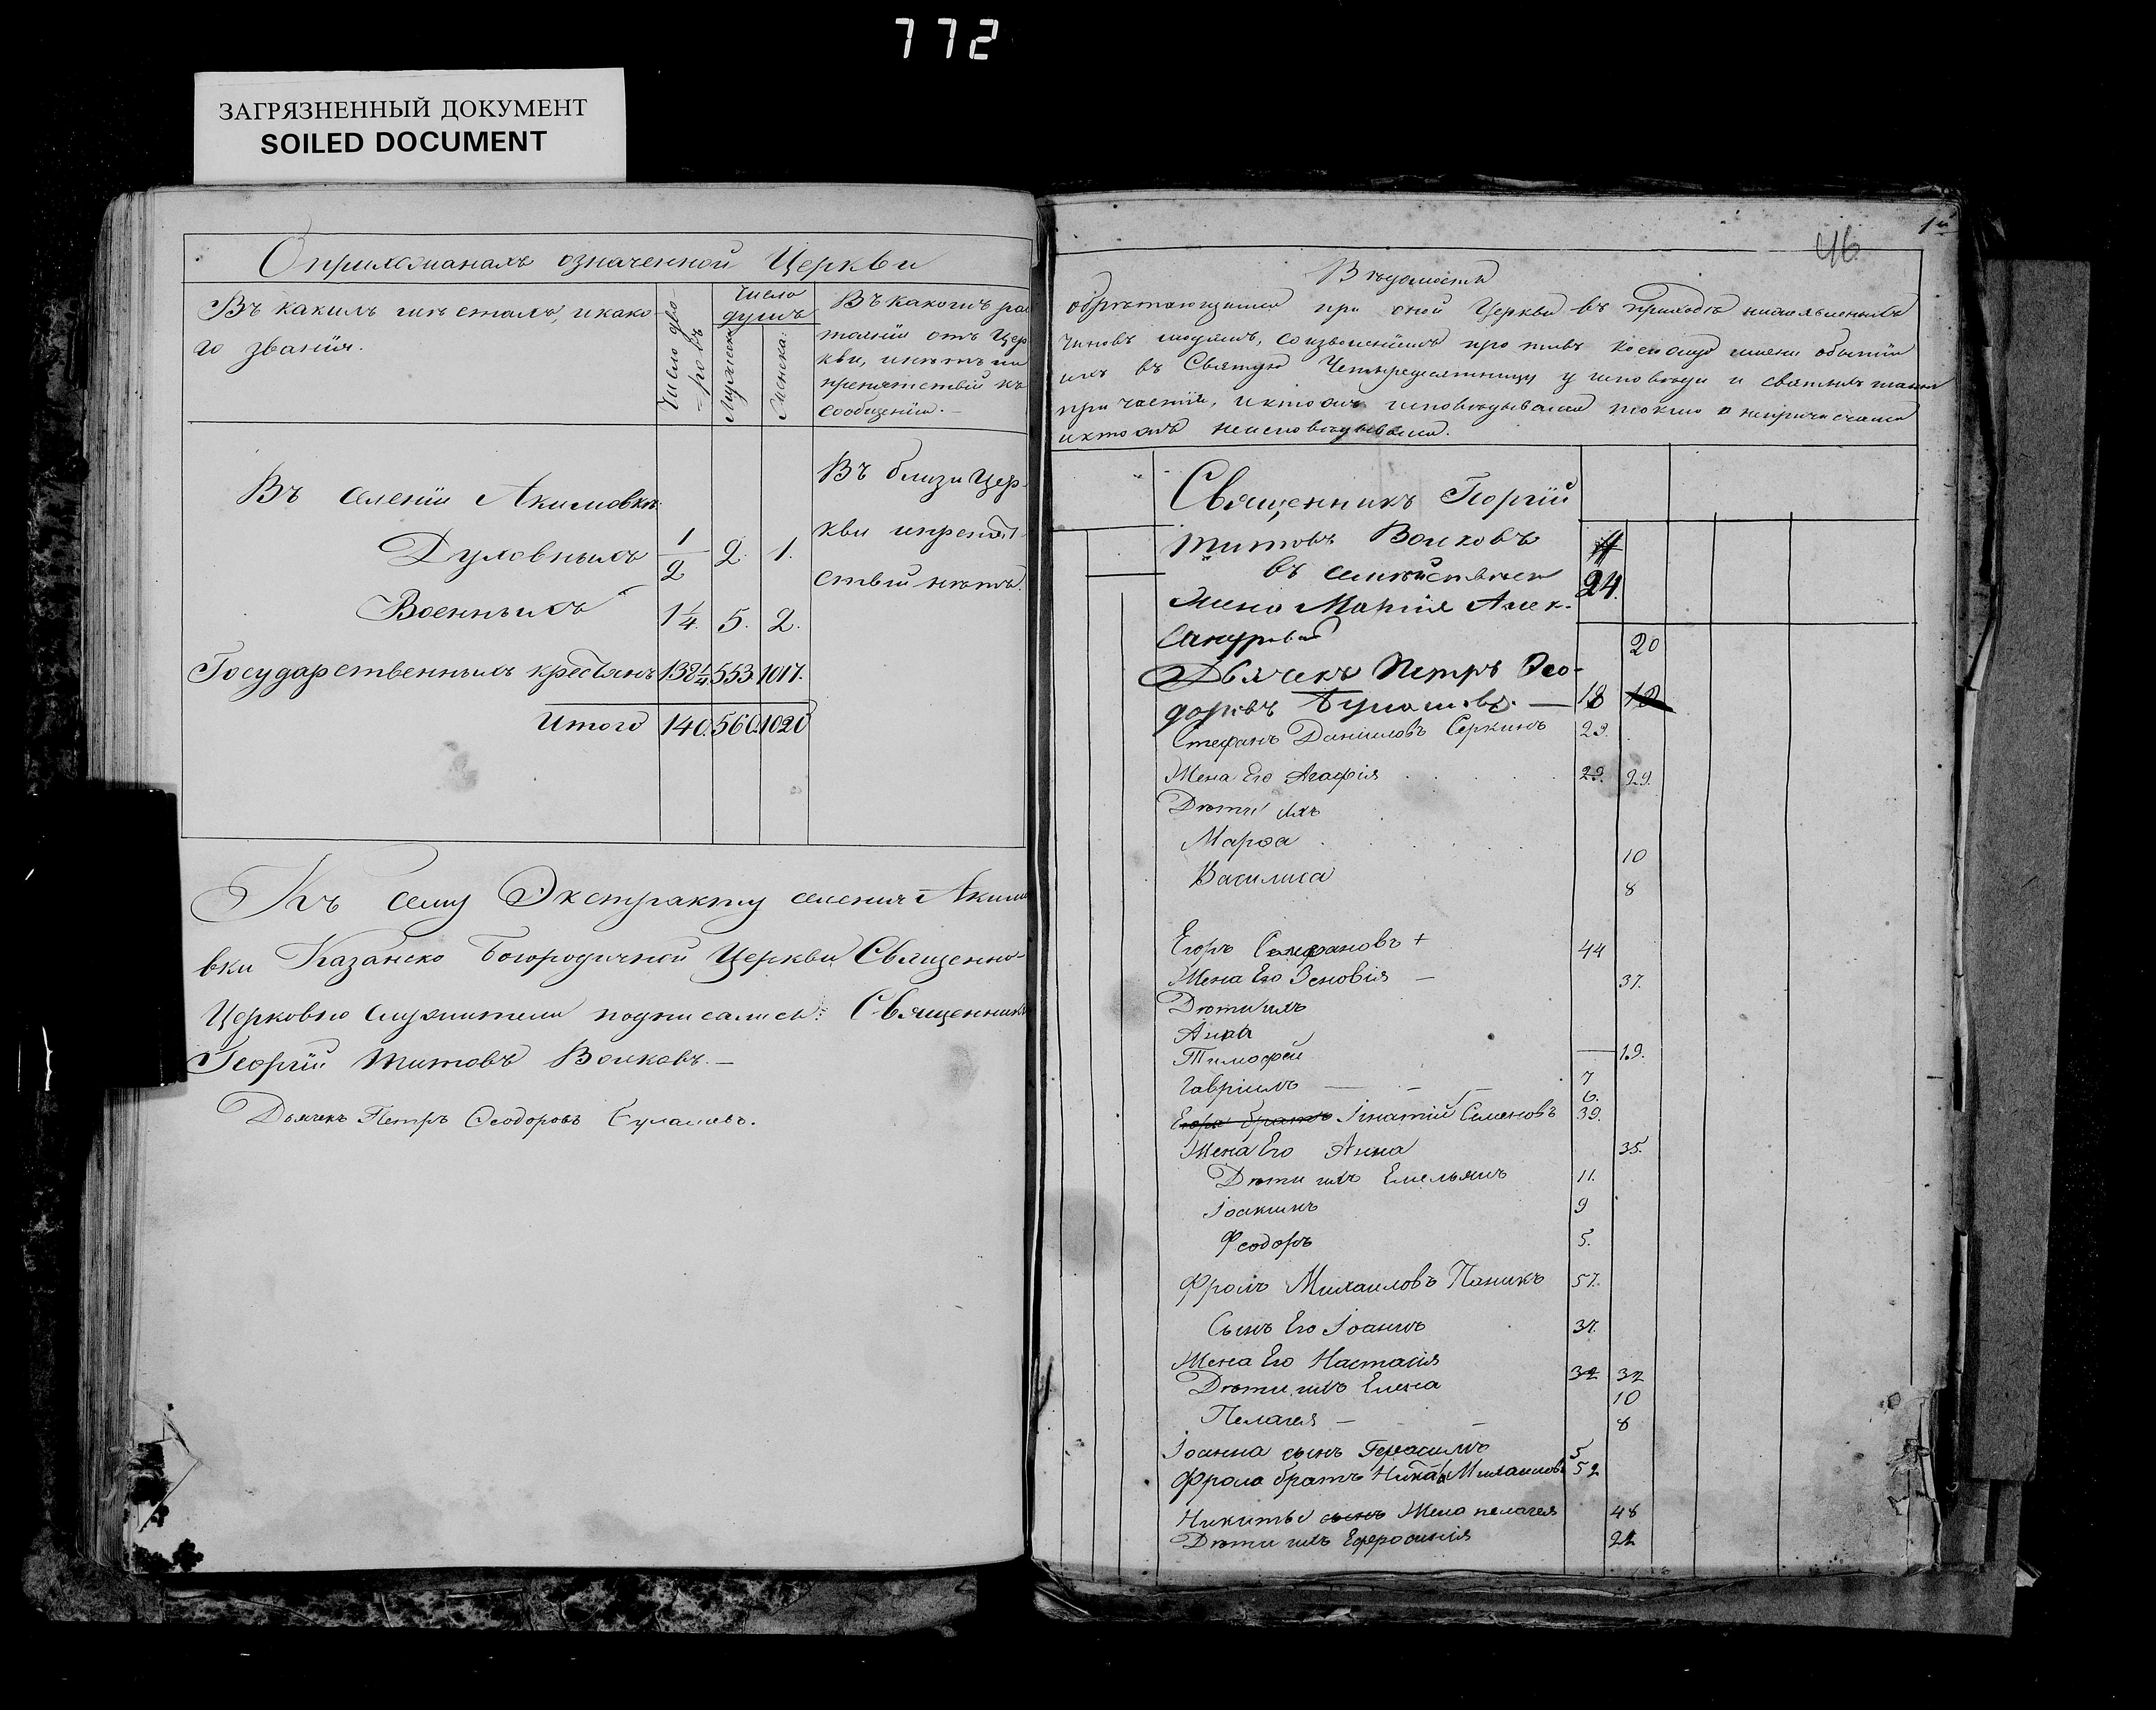 772
ЗАГРЯЗНЕННЫЙ ДОКУМЕНТ
SOILED DOCUMENT
О прихожанахъ означенной Церкви
Въ какихъ мѣстахъ, и како-
го званія.
Число дво-
ровъ
Число
душъ
Мужеска
Женска:
Въ какомъ раз
тоянiи отъ Цер
кви, и нѣтъ ли
препятствiй къ
сообщенію. —
Въ селеніи Акимовкѣ
Духовныхъ 1/2 2. 1.
Военныхъ 1 1/4. 5. 2.
Государственныхъ крестьянъ 138 1/4 553. 1017.
Итого 140. 560. 1020
Въ близи Цер-
кви и препят-
ствiй нѣтъ.
Къ сему Экстракту селенія Акимо
вки Казанско Богородичной Церкви Священно-
Церковно служители подписались: Священникъ
Георгій Титовъ Волковъ. —
Дьячекъ Петръ Ѳеодоровъ Булашевъ.
1й
46
Вѣдомость
обрѣтающимся при оной Церкви въ приходѣ нижеявленныхъ
чиновъ людямъ, со изъявленіемъ противъ коегождо имени о бытіи
ихъ въ Святую Четыредесятницу у исповѣди и святыхъ таинъ
причастія, и кто жъ исповѣдывался токмо а непричастился
и кто жъ неисповѣдывался.
Священникъ Георгій
Титовъ Волковъ
24.
въ семействѣ
Жена Марія Алек-
сандрова 20
Дьячекъ Петръ Ѳео-
доровъ Булашевъ. — 18
Стефанъ Даніиловъ Серкинъ 29.
Жена Его Агафія 29. 29.
Дѣти ихъ
Марѳа 10
Василиса 8
Егоръ Стефановъ + 44
Жена Его Зеновія — 37.
Дѣти ихъ
Анна
Тимофей — 19.
Гавріилъ 7
6.
Егора братъ Ігнатій Семеновъ 39.
Жена Его Анна 35.
Дѣти ихъ Емельянъ 11.
Іоакимъ 9
Феодоръ 5.
Фролъ Михаиловъ Паникъ 57.
Сынъ Его Іоаннъ 37.
Жена Его Настасія 32 32
Дѣти ихъ Елена 10
Пелагея — 8
Іоанна сынъ Герасимъ 5
Фрола братъ Никита Михаиловъ 52
Никиты сынъ Жена пелагея 48
Дѣти ихъ Ефросинія 21